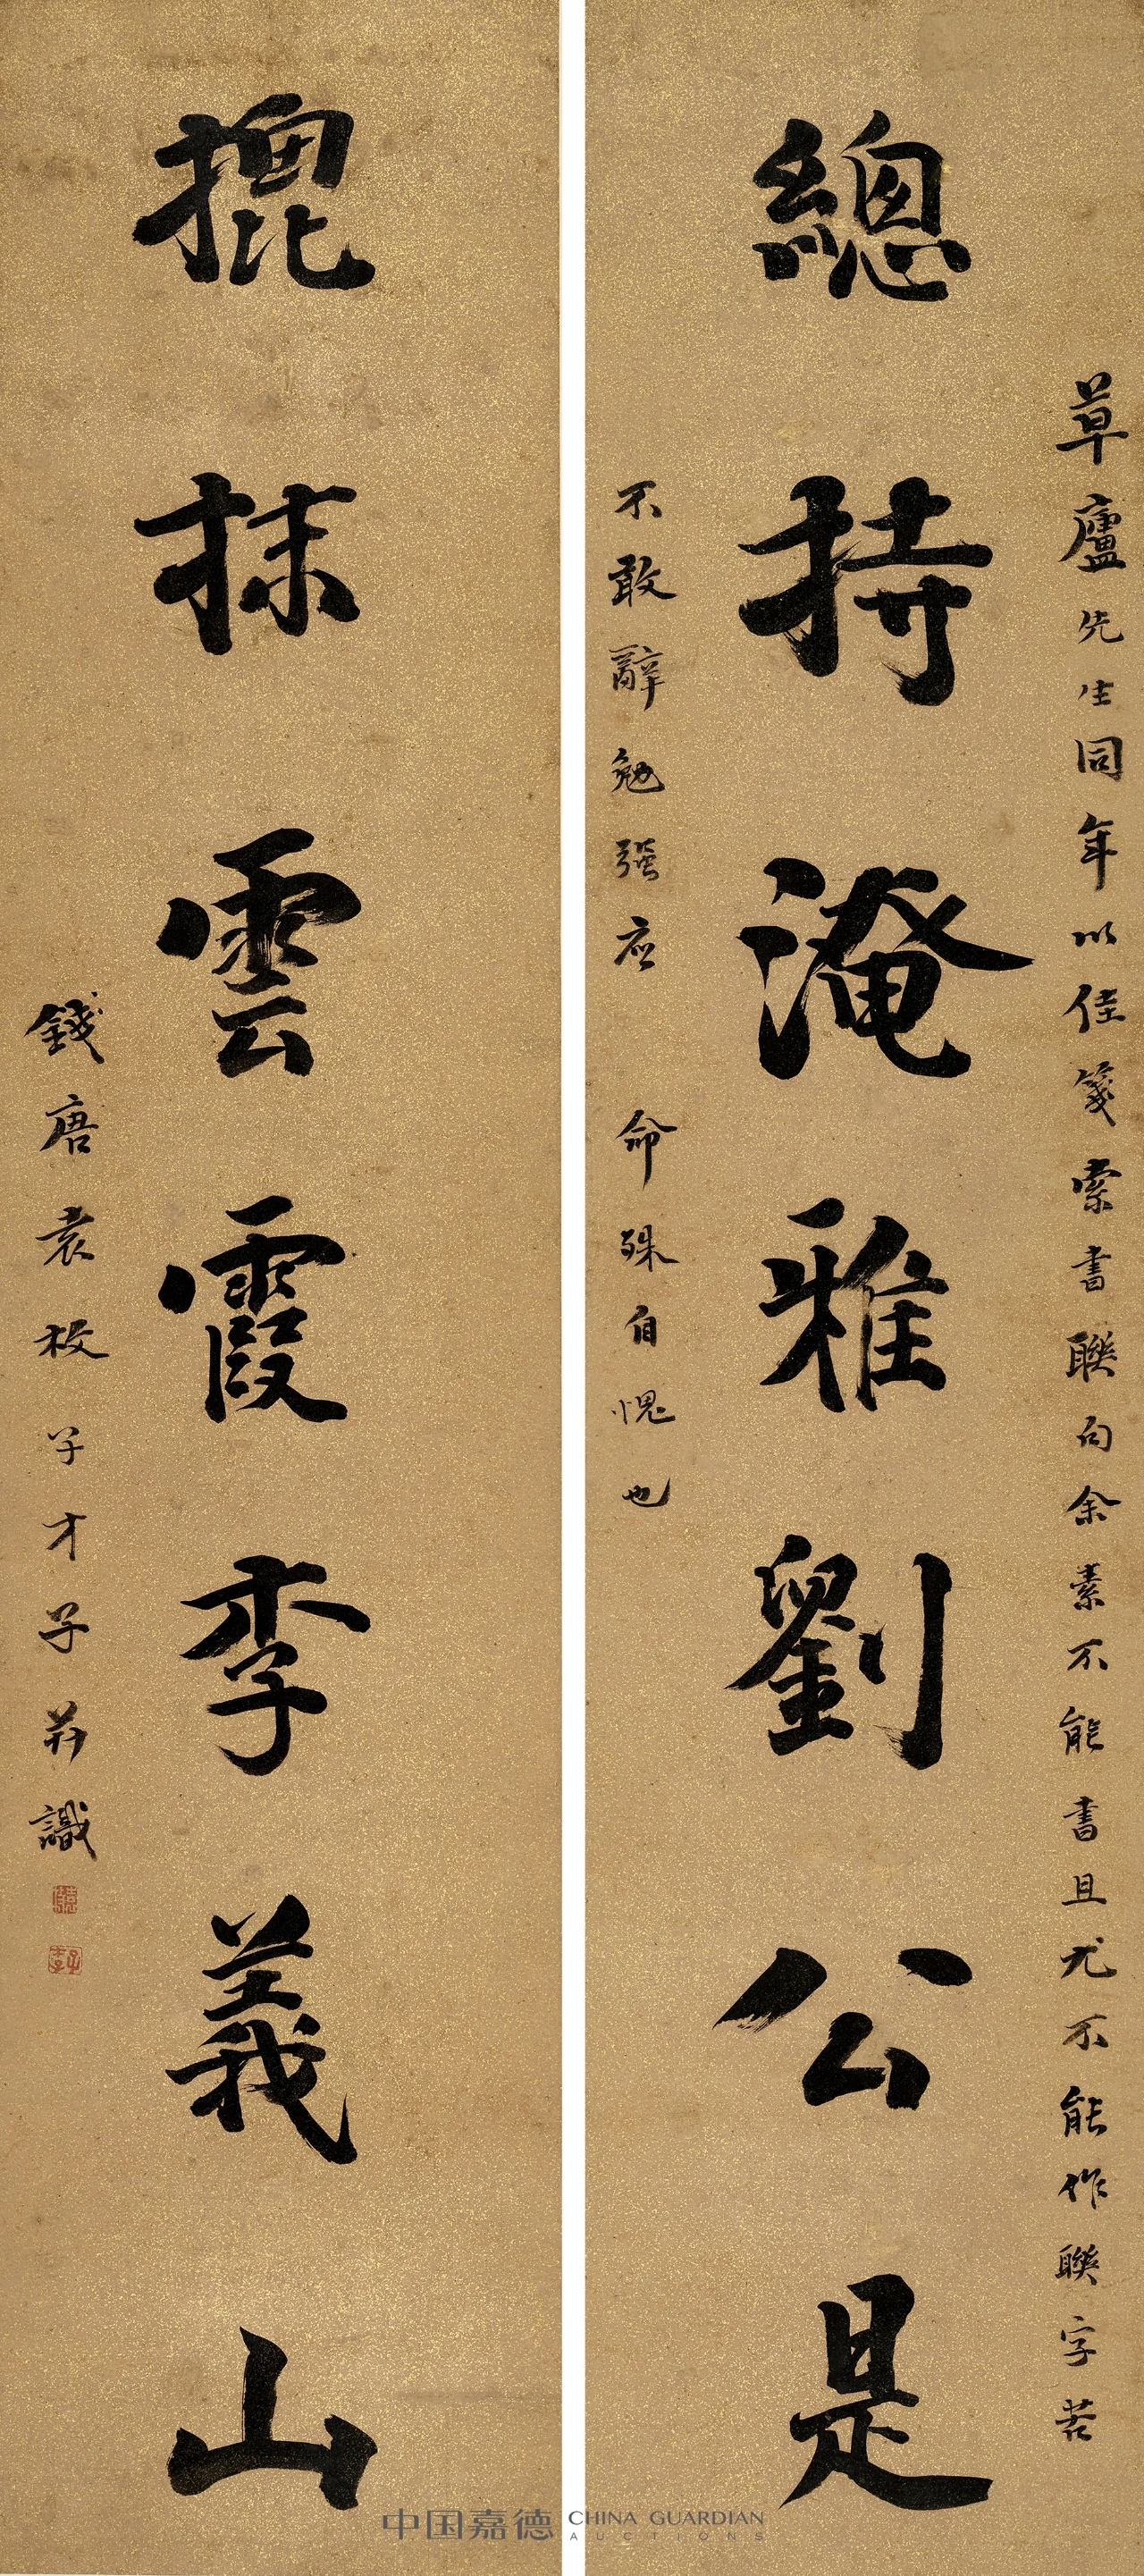 草廬先生同年以佳箋索書聯句余素不能書且尤不能作聯字苦
總持淹雅劉公是
不敢辭勉強应命殊自愧也
捃抹雲霞李義山
錢唐袁枚子才子并識
中国嘉德
CHINA GUARDIAN
AUCTIONS